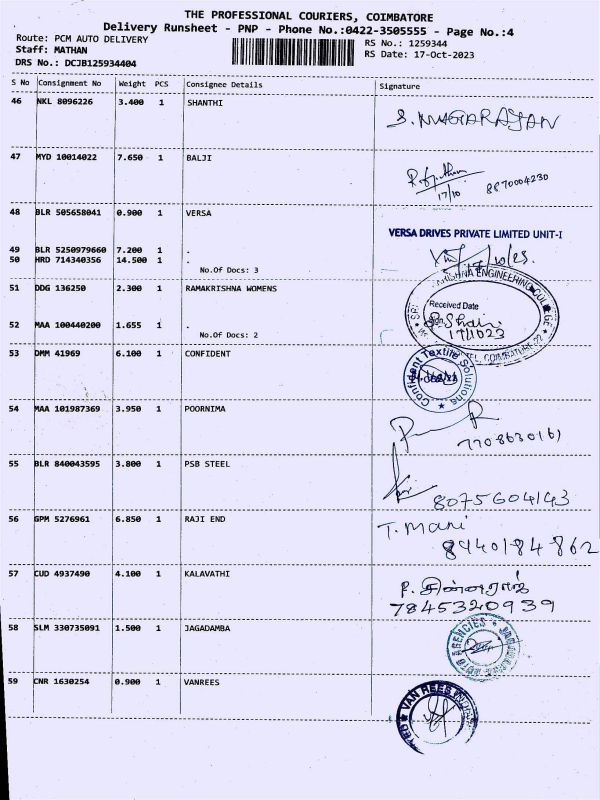 THE PROFESSIONAL COURIERS, COIMBATORE
Delivery Runsheet - PNP - Phone No.:0422-3505555 - Page No.:4
Route: PCM AUTO DELIVERY
RS No.: 1259344
Staff: MATHAN
RS Date: 17-Oct-2023
DRS No.: DCJB125934404
S No Consignment No Weight PCS Consignee Details Signature
46 NKL 8096226 3.400 1 SHANTHI
S. NAGARAJAN
47 MYD 10014022 7.650 1 BALJI
17/10 8870004230
48 BLR 505658041 0.900 1 VERSA
VERSA DRIVES PRIVATE LIMITED UNIT-I
49 BLR 5250979660 7.200 1 .
50 HRD 714340356 14.500 1 .
No.Of Docs: 3
51 DDG 136250 2.300 1 RAMAKRISHNA WOMENS
Received Date
171023
52 MAA 100440200 1.655 1 .
No.Of Docs: 2
53 DMM 41969 6.100 1 CONFIDENT
Confident Textile Solutions
54 MAA 101987369 3.950 1 POORNIMA
55 BLR 840043595 3.800 1 PSB STEEL
8075604143
56 GPM 5276961 6.850 1 RAJI END
T. Mani
8940184862
57 CUD 4937490 4.100 1 KALAVATHI
7845320939
58 SLM 330735091 1.500 1 JAGADAMBA
AGENCIES
59 CNR 1630254 0.900 1 VANREES
VAN REES